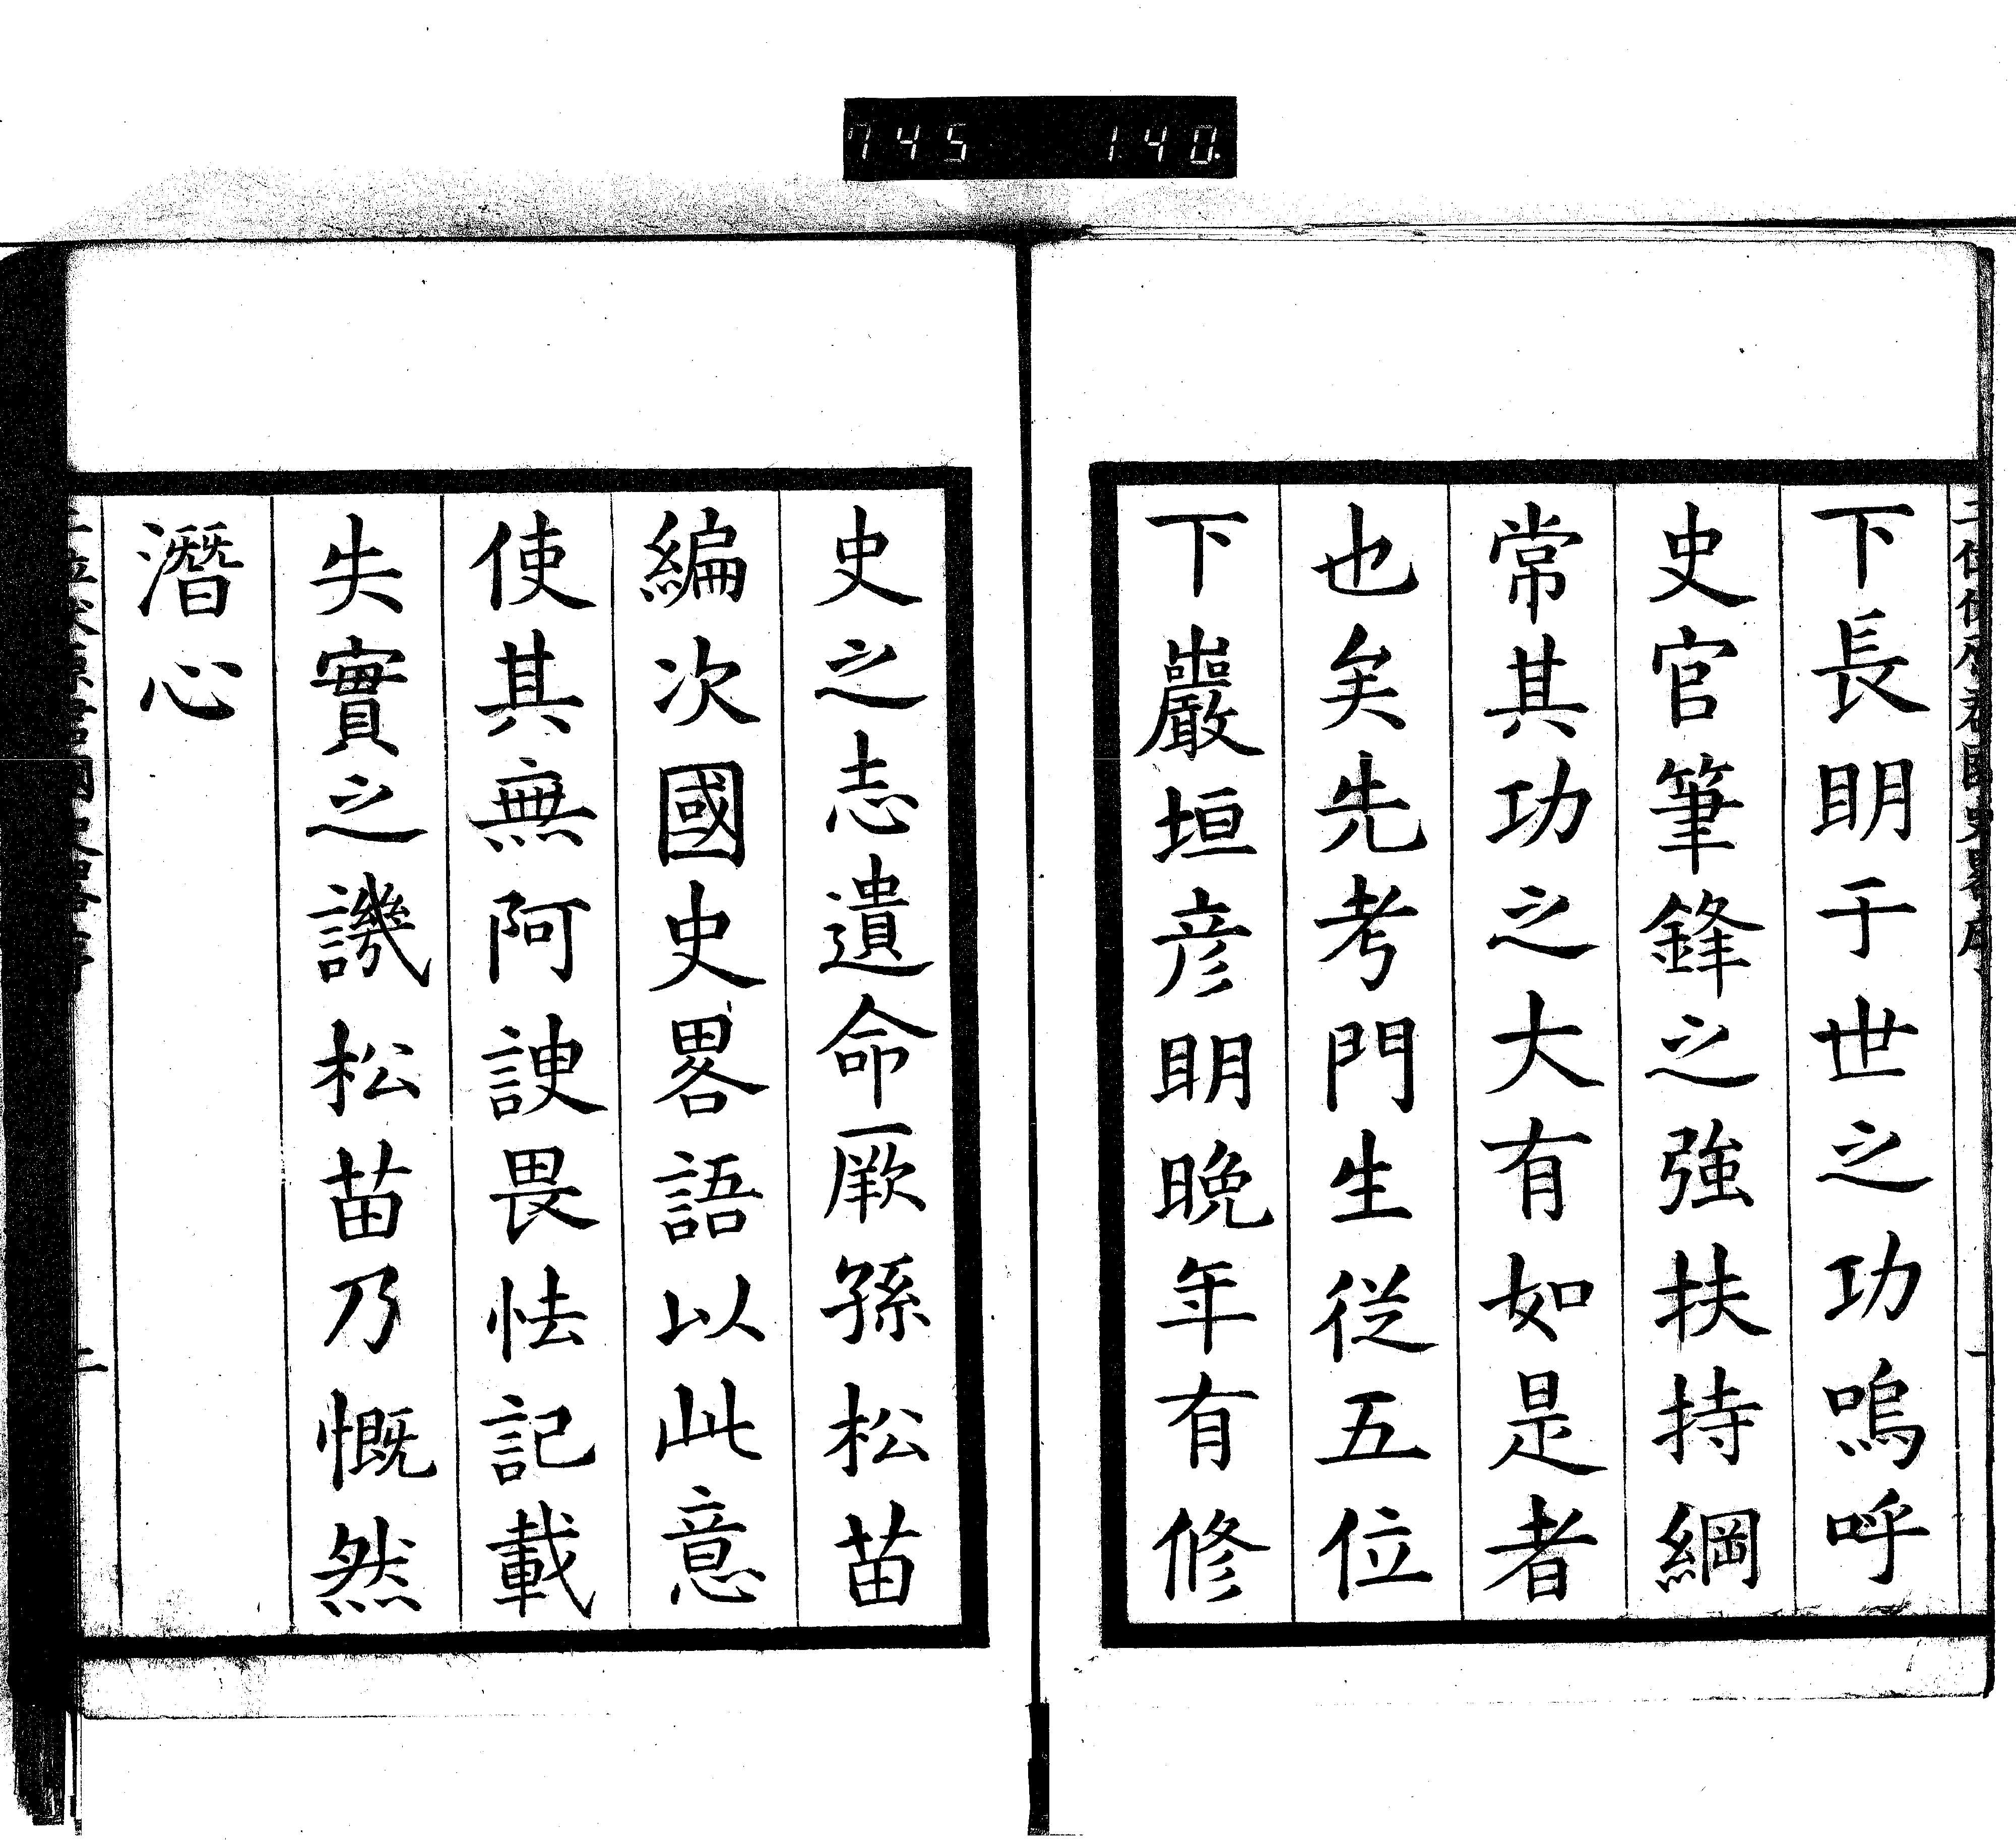 745 140.
下長明于世之功嗚呼
史官筆鋒之強扶持綱
常其功之大有如是者
也矣先考門生從五位
下巖垣彦明晚年有修
史之志遺命厥孫松苗
編次國史畧語以此意
使其無阿諛畏怯記載
失實之譏松苗乃慨然
潛心
二